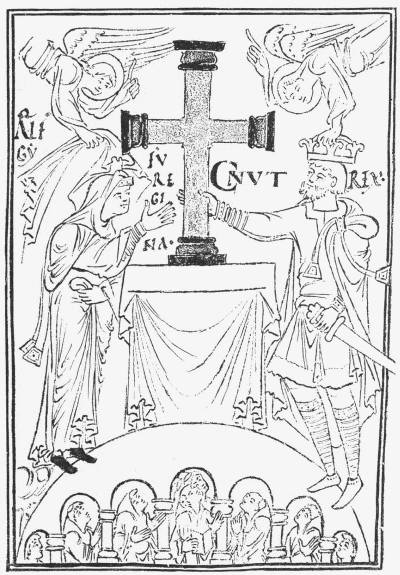 ÆLF
GY
FV
RE
GI
NA·
CNVT
REX·